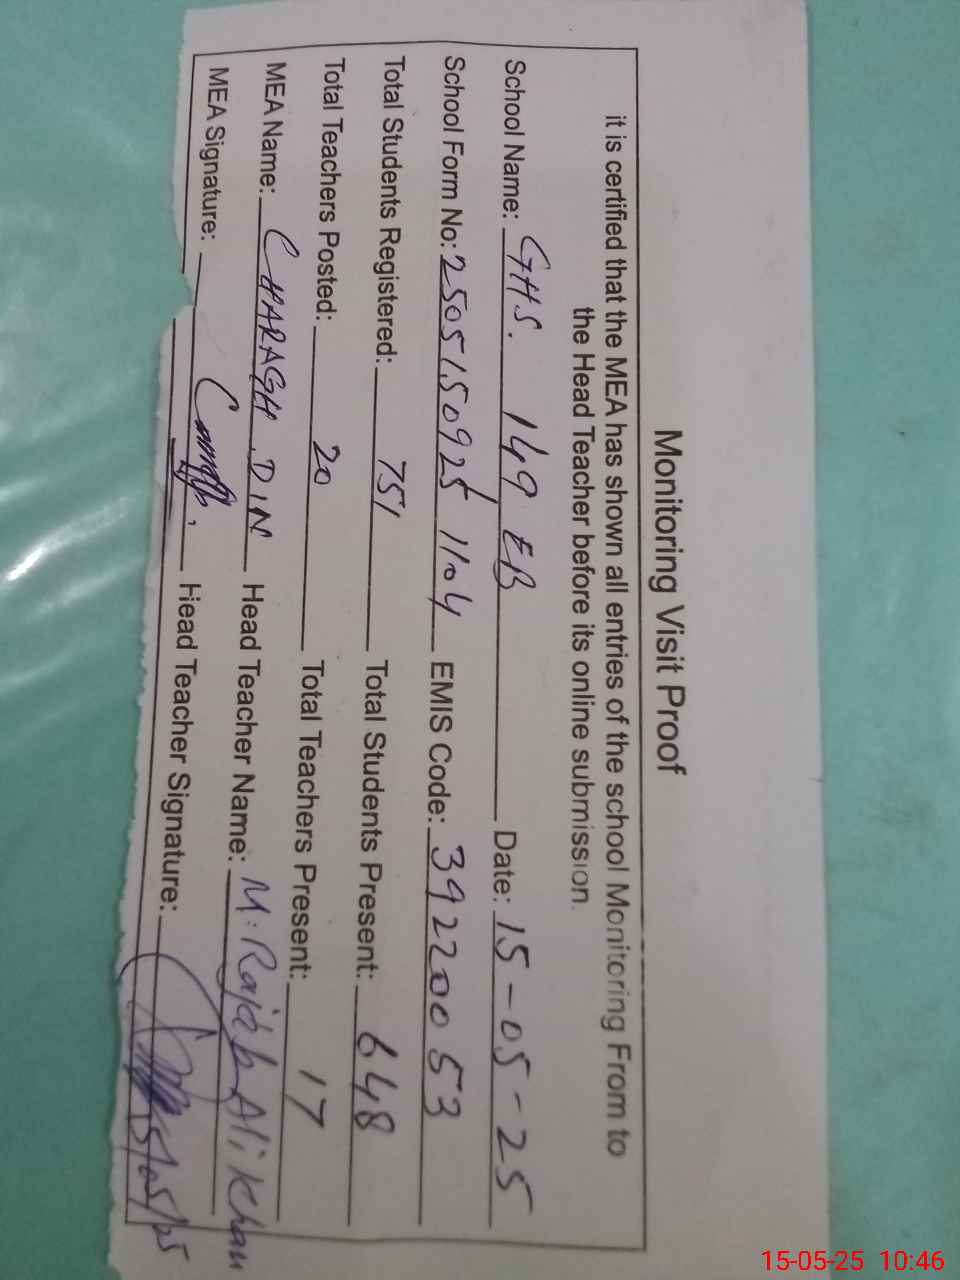 Monitoring Visit Proof
it is certified that the MEA has shown all entries of the school Monitoring From to
the Head Teacher before its online submission.
School Name: GHS. 149 EB Date: 15-05-25
School Form No: 25051509251104 EMIS Code: 39220053
Total Students Registered: 751 Total Students Present: 648
Total Teachers Posted: 20 Total Teachers Present: 17
MEA Name: CHARAGH DIN Head Teacher Name: M. Rajab Ali Khan
MEA Signature: Head Teacher Signature:
15-05-25 10:46